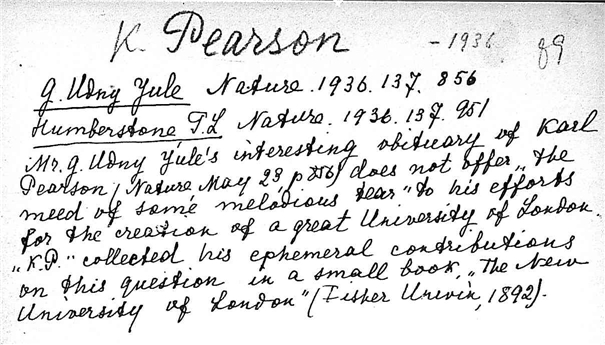 K. Pearson -1936 89
G. Udny Yule Nature. 1936. 137. 856
Humberstone T.L Nature. 1936. 137. 951
Mr. G. Udny Yule's interesting obituary of Karl
Pearson (Nature May 23, p 856) does not offer „the
meed of some melodious tear" to his efforts
for the creation of a great University of London.
„K.P." collected his ephemeral contributions
on this question in a small book, „The New
University of London" (Fisher Unwin, 1892).